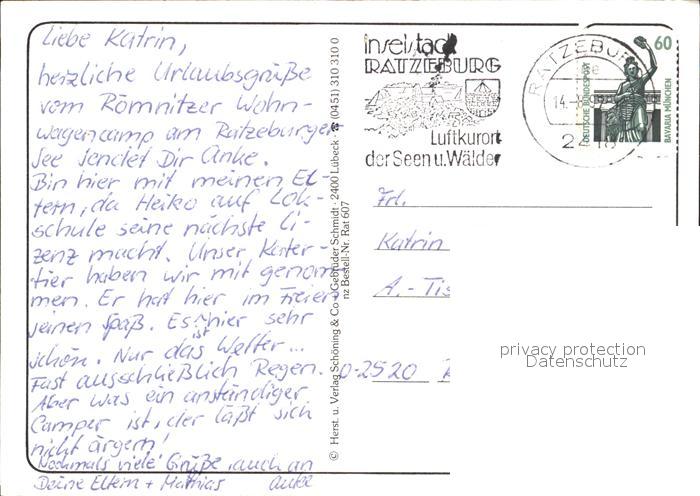 Liebe Katrin,
herzliche Urlaubsgrüße
vom Römnitzer Wohn-
wagencamp am Ratzeburger
See sendet Dir Anke.
Bin hier mit meinen El-
tern, da Heiko auf Lok-
schule seine nächste Li-
zenz macht. Unser Kater-
tier haben wir mit genom
men. Er hat hier im Freien
seinen Spaß. Es hier sehr
ist
schön. Nur das Wetter...
Fast ausschließlich Regen.
Aber was ein anständiger
Camper ist, der läßt sich
nicht ärgern!
Nochmals viele Grüße, auch an
Deine Eltern + Matthias Anke
© Herst. u. Verlag Schöning & Co + Gebrüder Schmidt · 2400 Lübeck · ☎ (0451) 310 310 0
nz Bestell-Nr. Rat 607
inselstadt
RATZEBURG
Luftkurort
der Seen u. Wälder
RATZEBU
14.-
24
60
DEUTSCHE BUNDESPOST
BAVARIA MÜNCHEN
Frl.
Katrin
A.-Tis
O-2520
privacy protection
Datenschutz